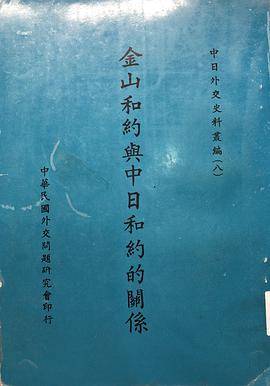 中日外交史料叢編(八)
金山和約與中日和約的關係
中華民國外交問題研究會印行